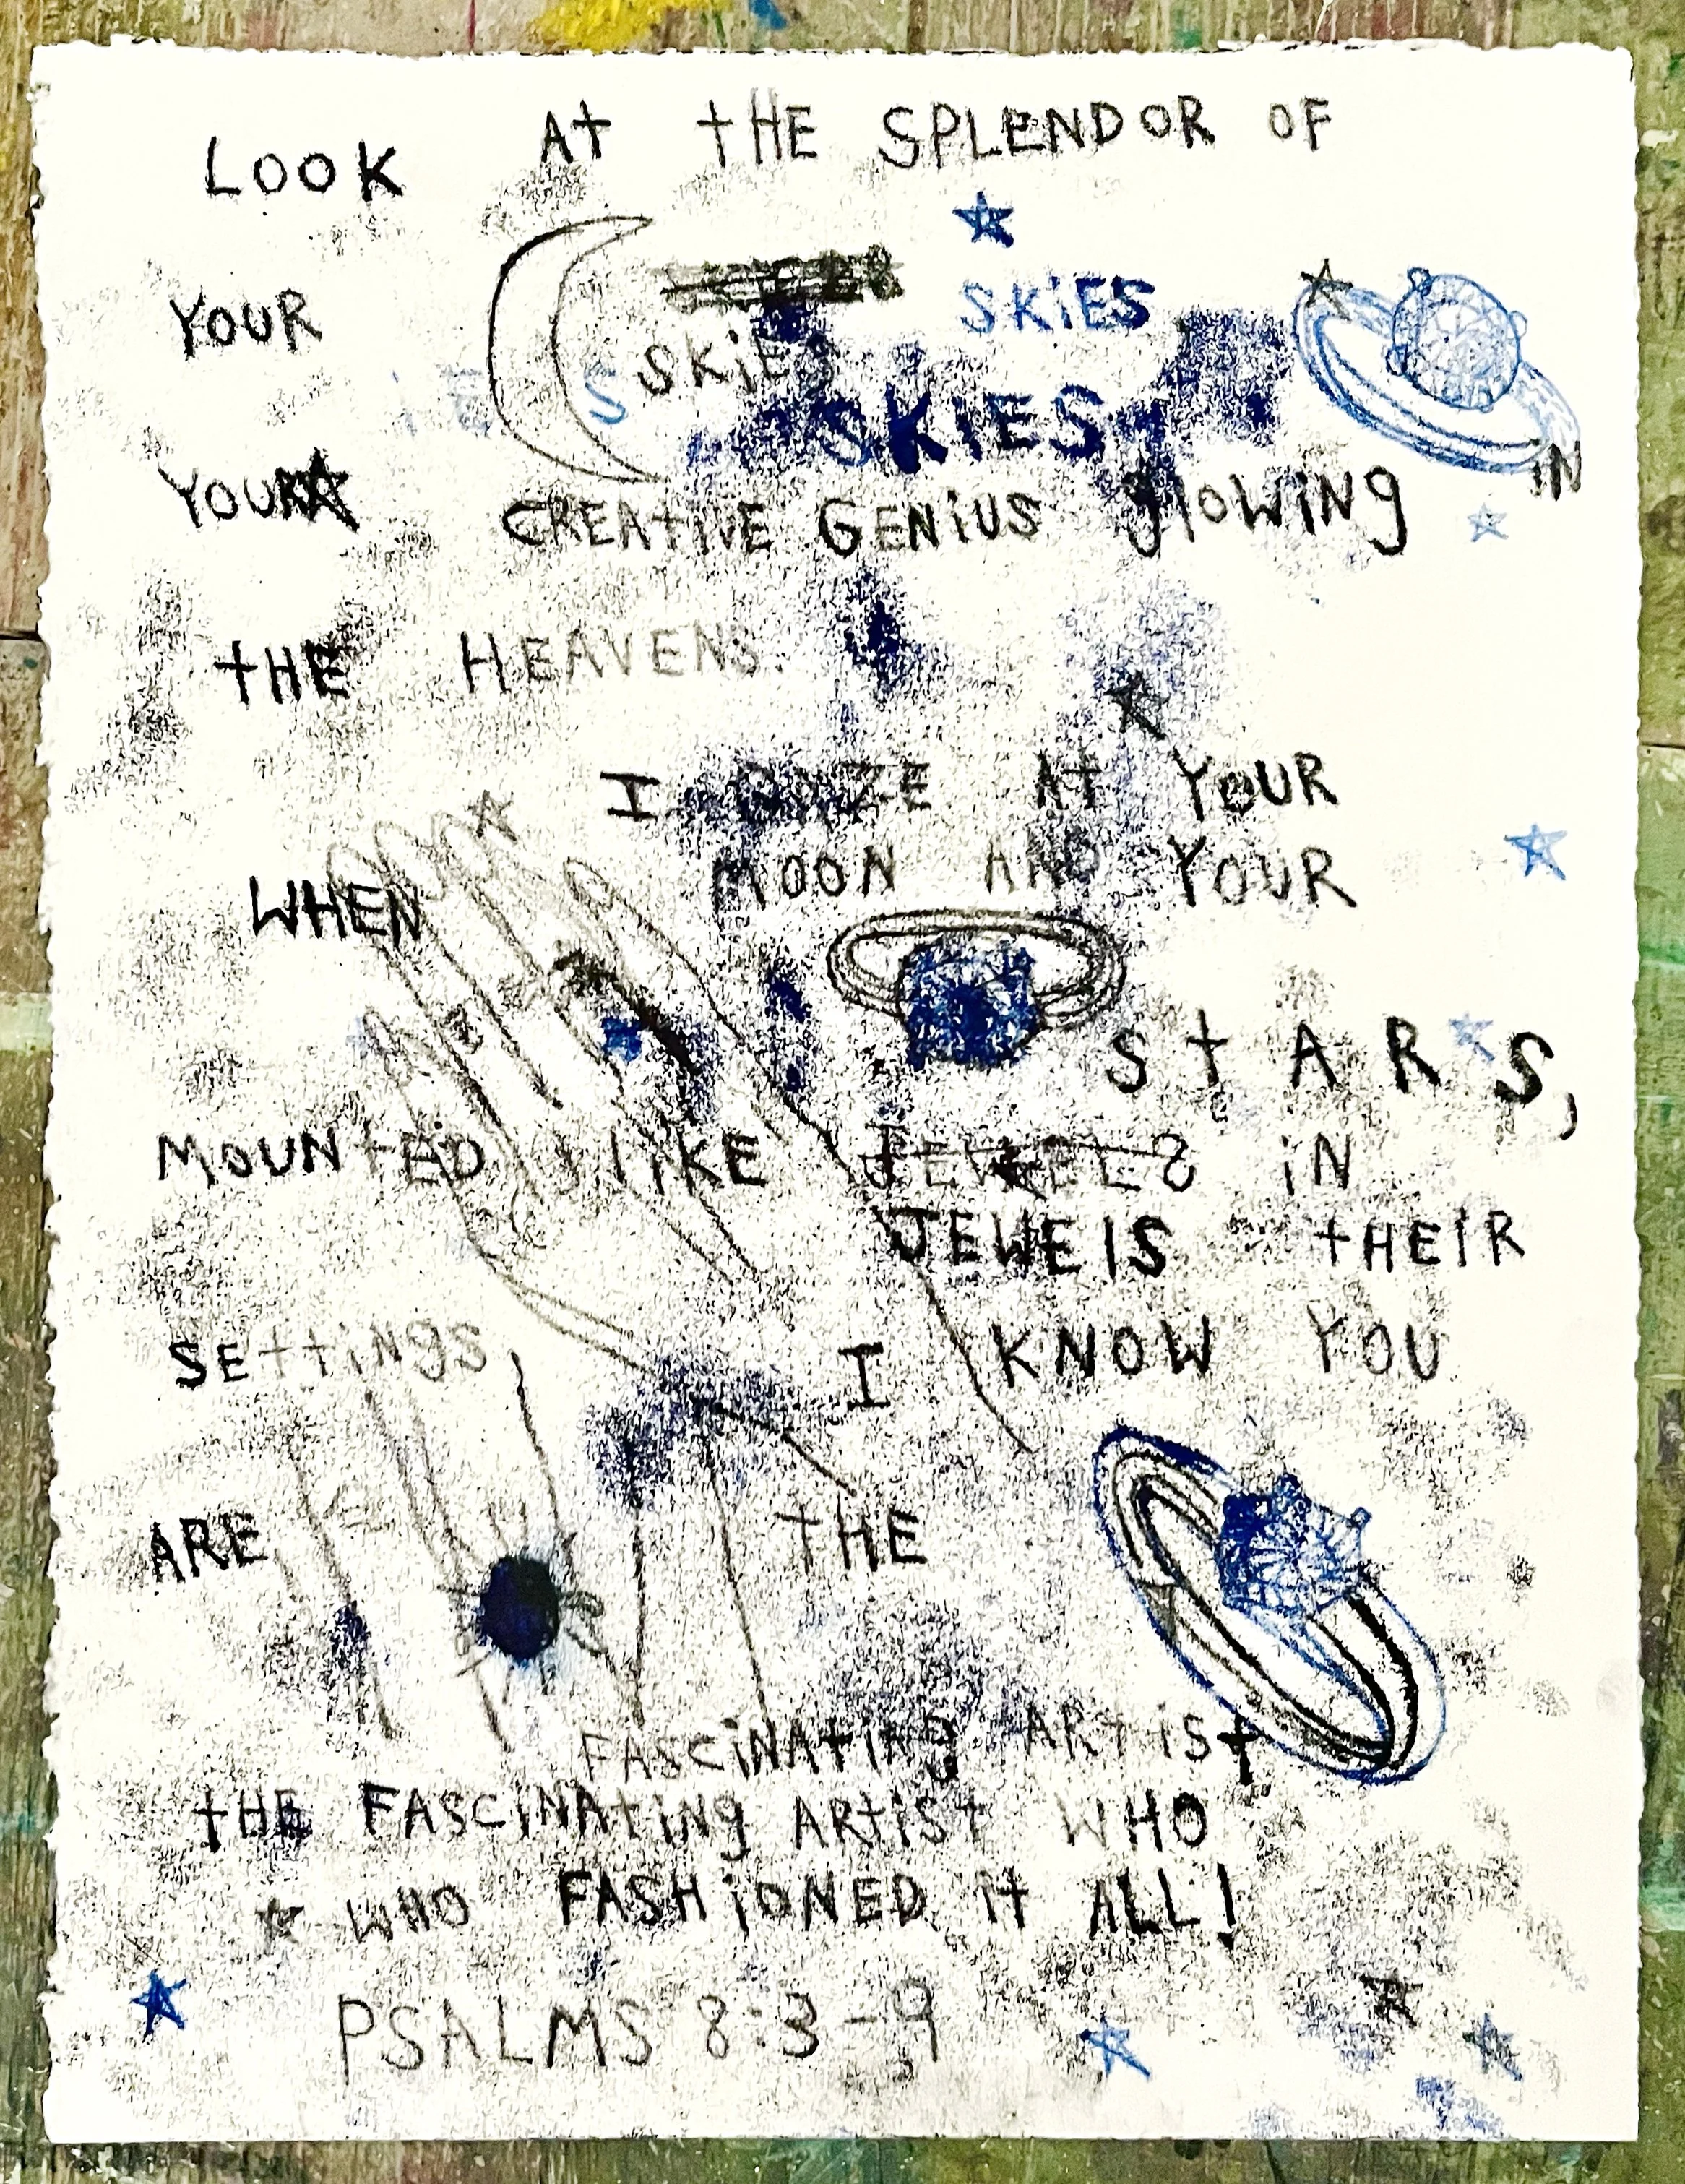 LOOK AT THE SPLENDOR OF
YOUR SKIES
S SKIES
SKIES
YOUR CREATIVE GENIUS glOWING IN
THE HEAVENS.
I GAZE AT YOUR
WHEN MOON AND YOUR
STARS,
MOUNTED lIKE JEWELS IN
JEWElS THEIR
SETTINgS,
I KNOW YOU
ARE THE
FASCINATINg ARTIST
THE FASCINATINg ARTIST WHO
WHO FASHIONED IT ALL!
PSALMS 8:3-9